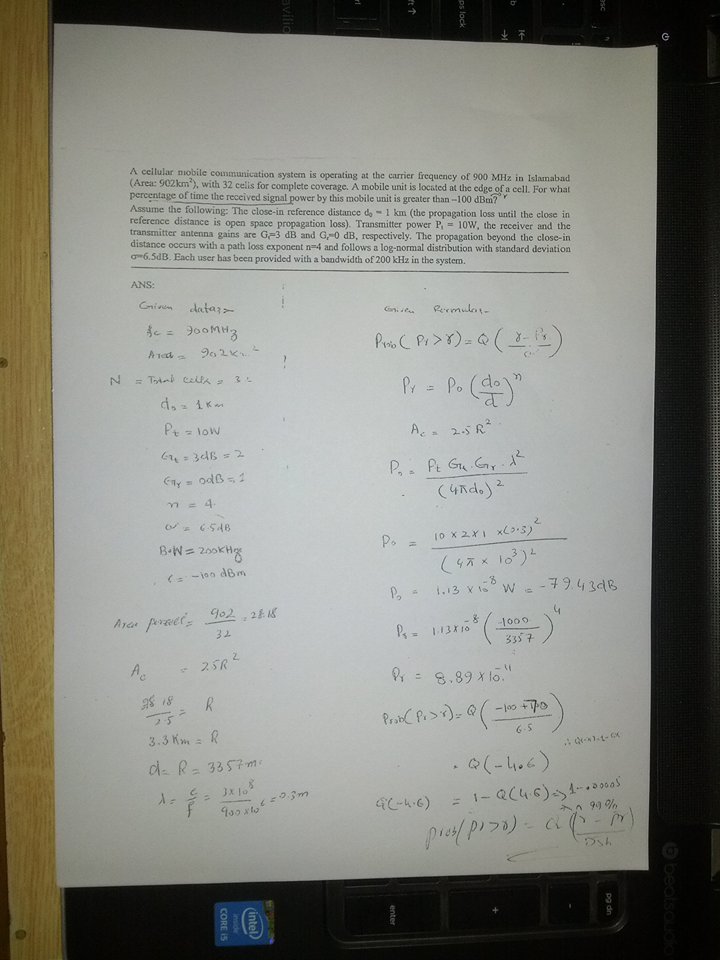 A cellular mobile communication system is operating at the carrier frequency of 900 MHz in Islamabad
(Area: 902km²), with 32 cells for complete coverage. A mobile unit is located at the edge of a cell. For what
percentage of time the received signal power by this mobile unit is greater than –100 dBm?
Assume the following: The close-in reference distance d₀ = 1 km (the propagation loss until the close in
reference distance is open space propagation loss). Transmitter power Pₜ = 10W, the receiver and the
transmitter antenna gains are Gₜ=3 dB and Gᵣ=0 dB, respectively. The propagation beyond the close-in
distance occurs with a path loss exponent n=4 and follows a log-normal distribution with standard deviation
σ=6.5dB. Each user has been provided with a bandwidth of 200 kHz in the system.
ANS:
Given data:-
fc = 900MHz
Area = 902K
N = Total Cells = 3
d₀ = 1Km
Pt = 10W
Gt = 3dB = 2
Gr = 0dB = 1
n = 4
= 6.5dB
B.W = 200KHz
= -100 dBm
Area percell = 902/32 = 28.18
Ac = 2.5R²
28.18/2.5 = R
3.3 Km = R
d = R = 3357m
λ = c/f = 3x10⁸/900x10⁶ = 0.3m
Given Formulas-
Prob(Pr>γ) = Q(γ-Pr/σ)
Pr = Po(do/d)ⁿ
Ac = 2.5R²
Po = Pt Gt. Gr. λ²/(4πdo)²
Po = 10 x 2 x 1 x(0.3)²/(4π x 10³)²
Po = 1.13 x 10⁻⁸ W = -79.43dB
Pr = 1.13x10⁻⁸(1000/3357)⁴
Pr = 8.89 x 10⁻¹¹
Prob(Pr>γ) = Q(-100 + /6.5)
= Q(-4.6)
Q(-4.6) = 1-Q(4.6) => 1-.00005
99%
prob(pr>γ) = Q(γ - pr)
intel
inside
CORE i5
enter
pg dn
ps lock
beatsaudio